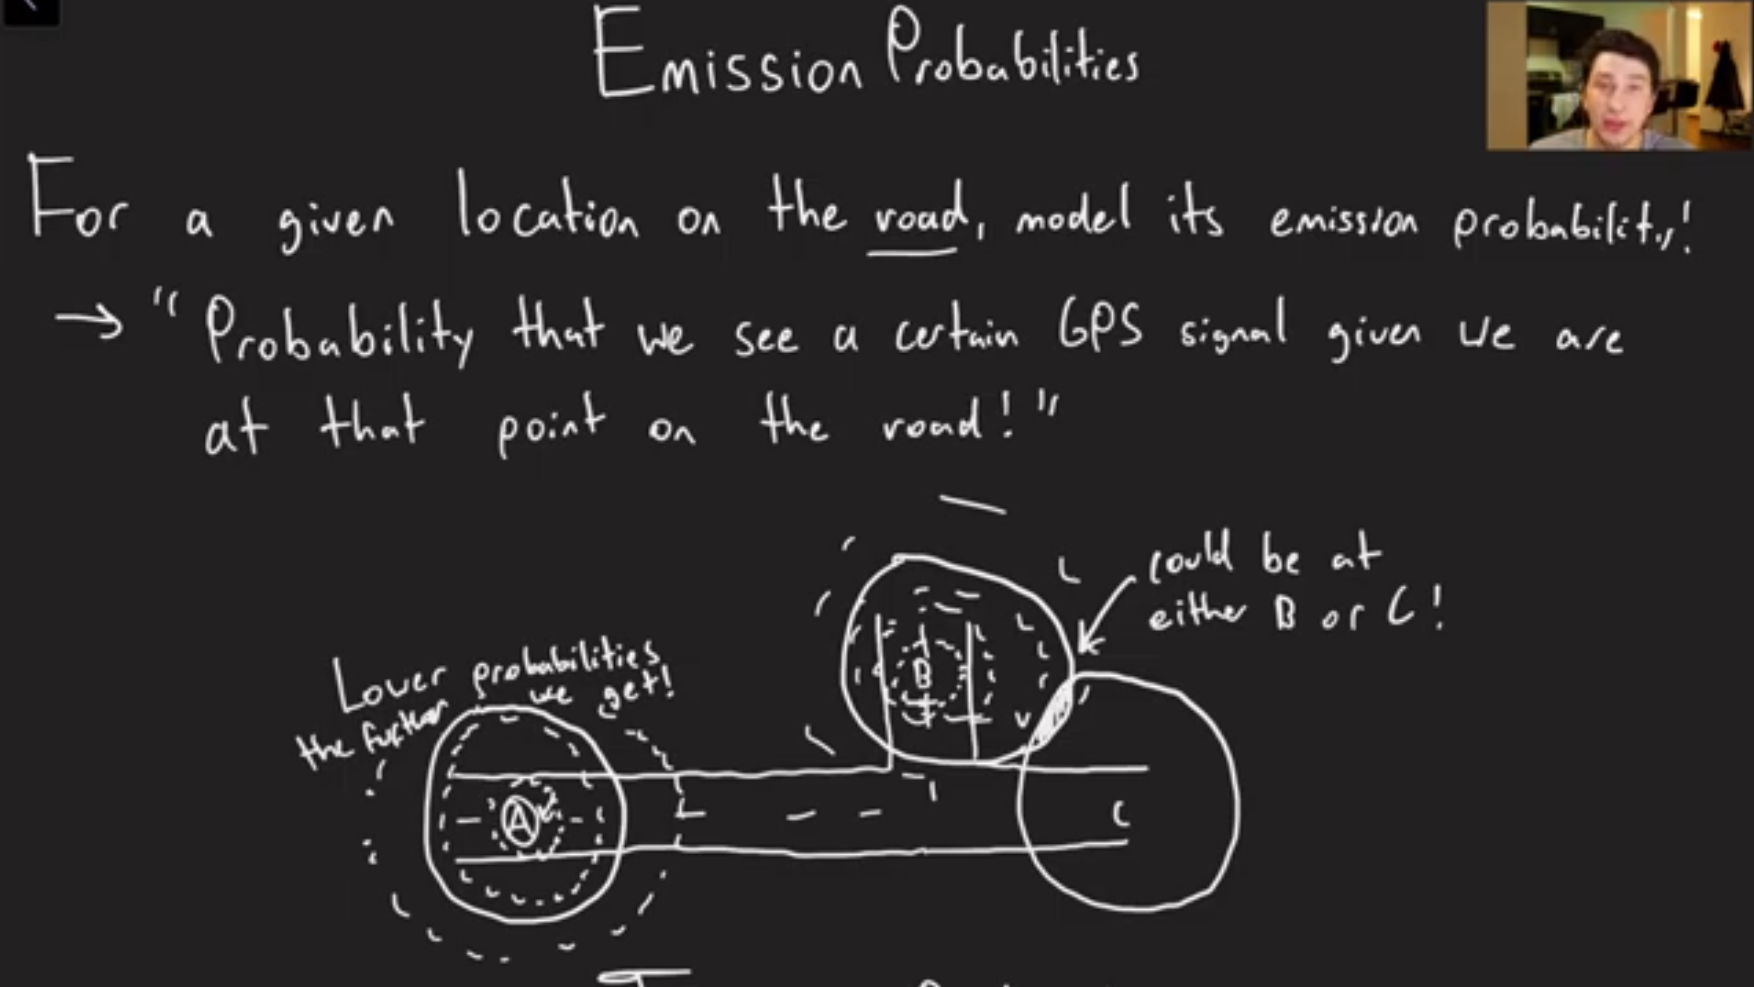 Emission Probabilities
For a given location on the road, model its emission probability!
→ "Probability that we see a certain GPS signal given we are
at that point on the road!"
could be at
either B or C!
Lower probabilities
the further we get!
B
A
C